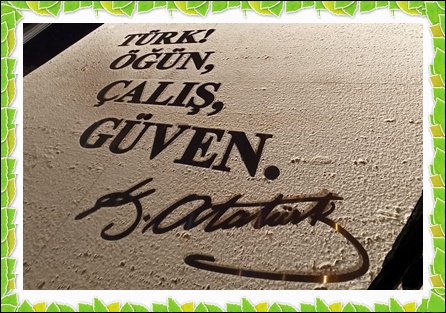 TÜRK!
ÖĞÜN,
ÇALIŞ,
GÜVEN.
K. Atatürk